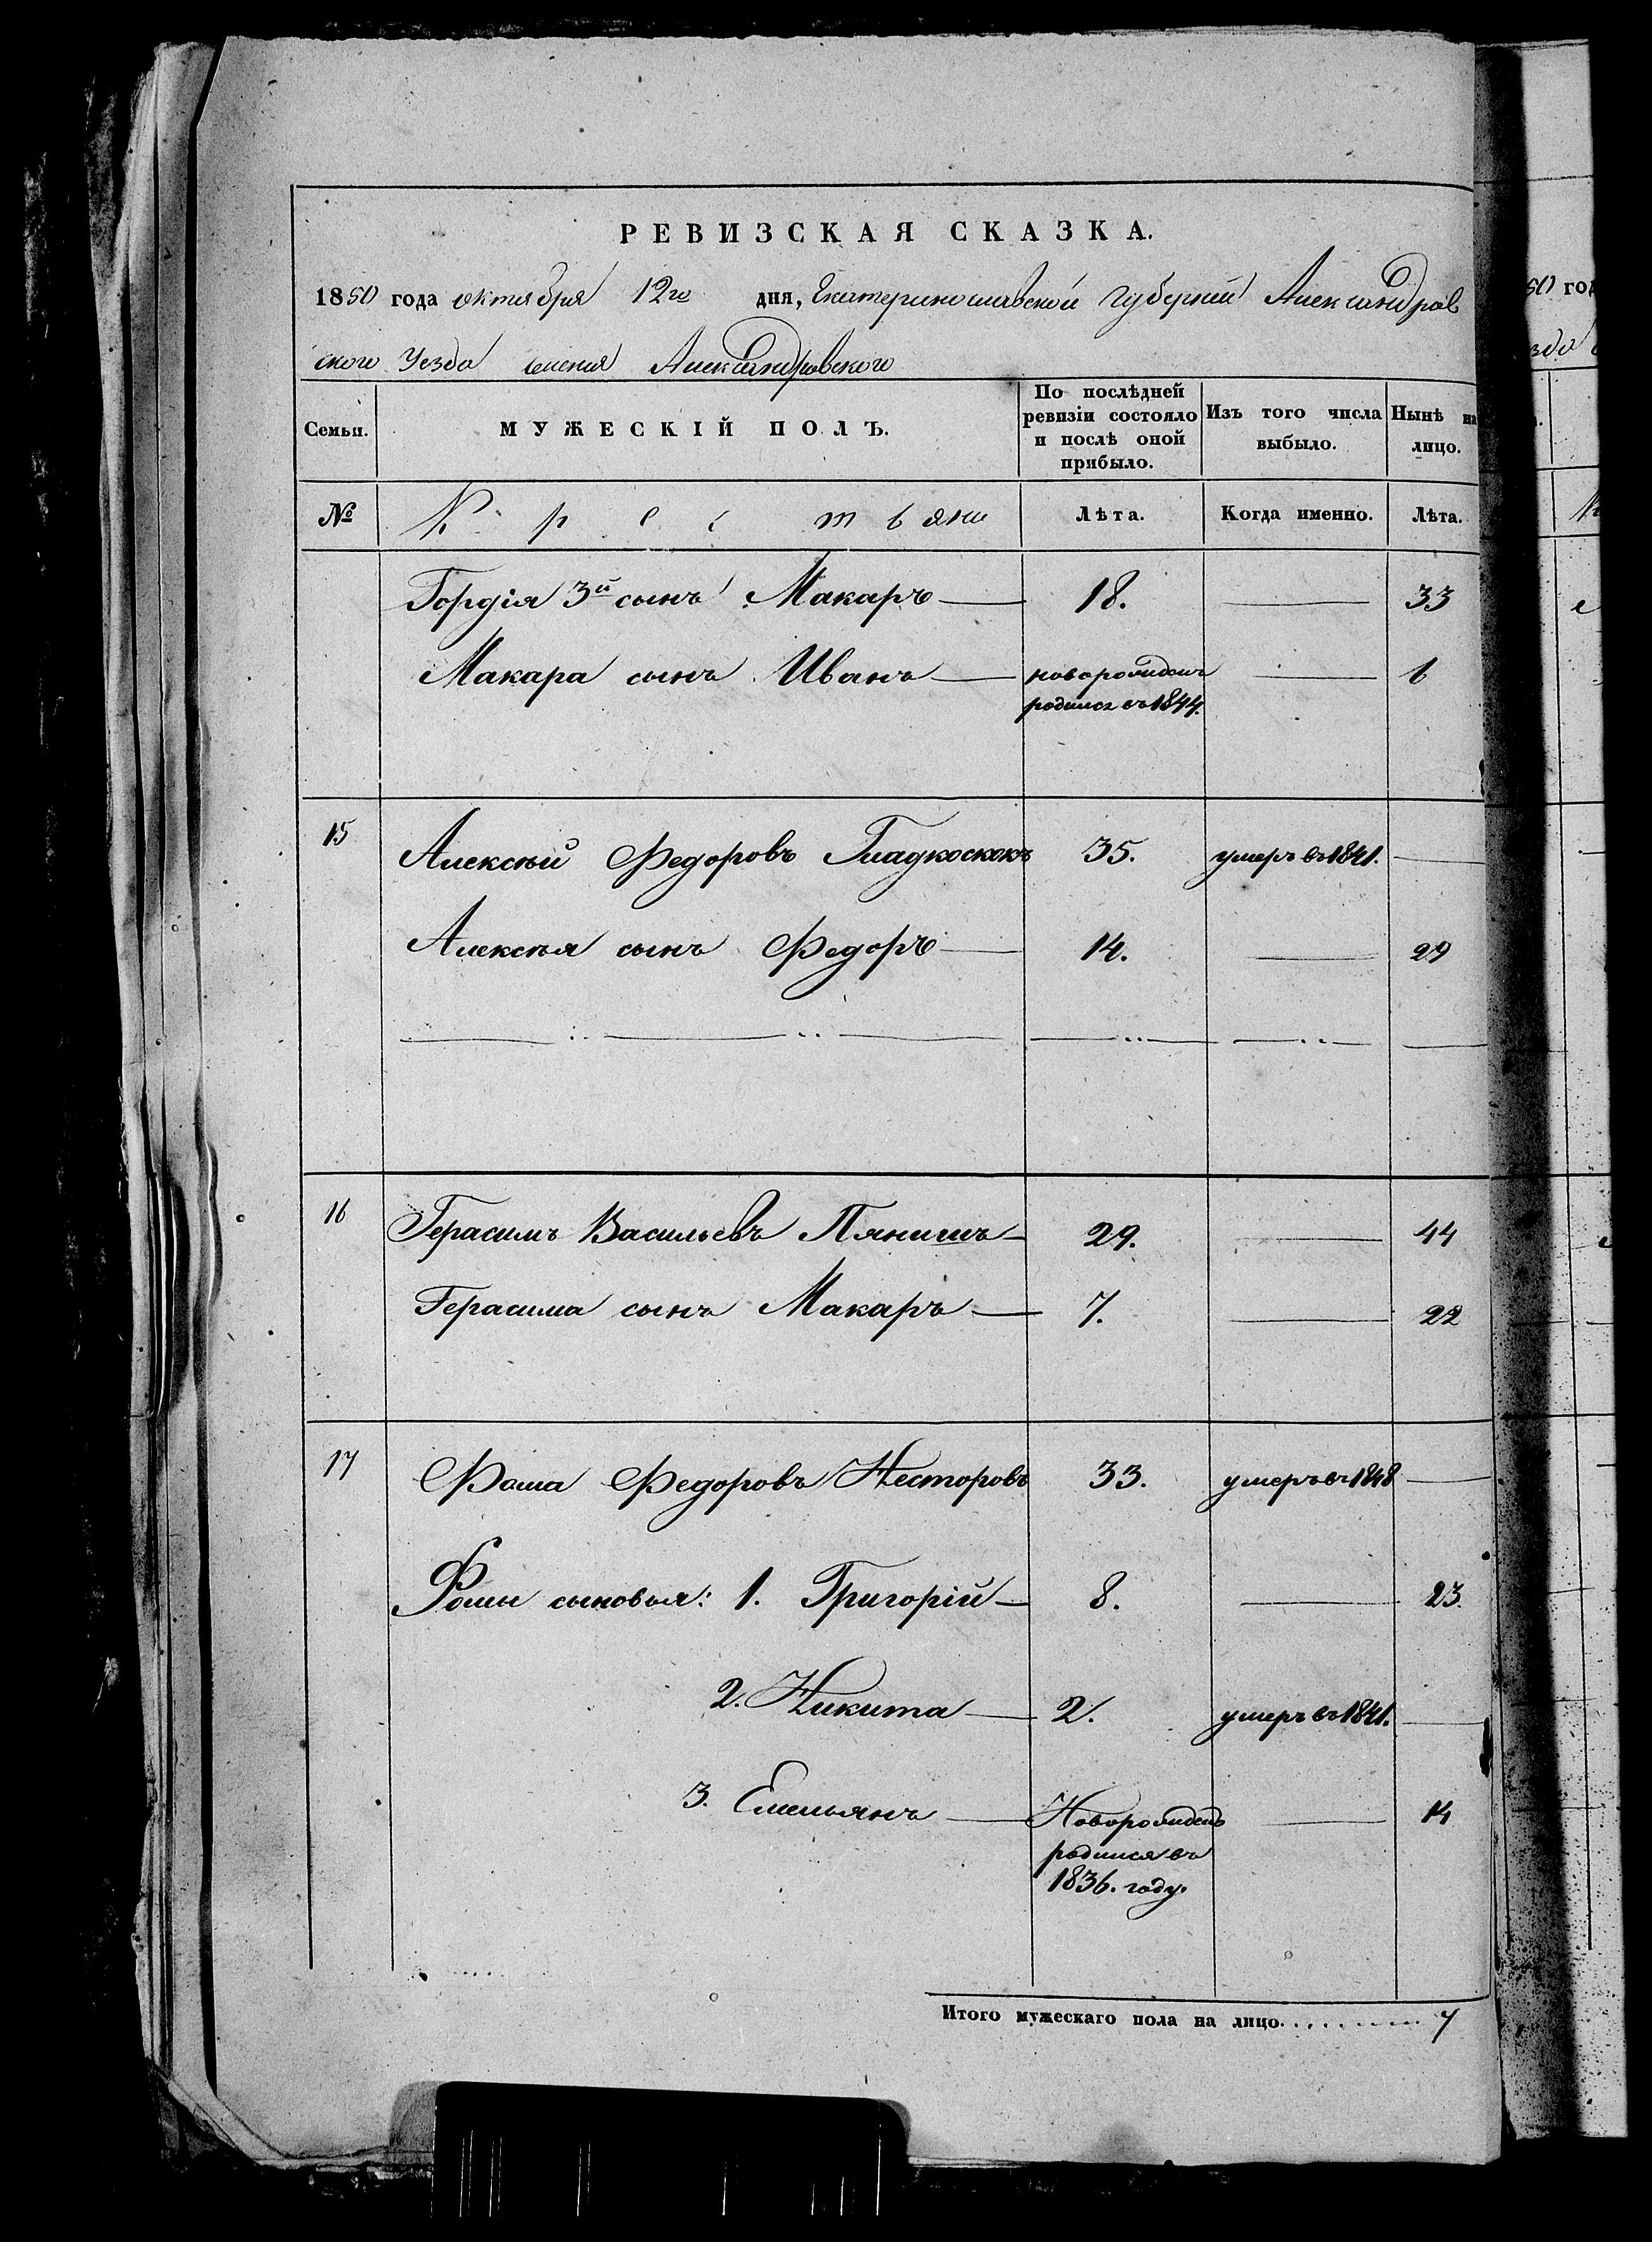 РЕВИЗСКАЯ СКАЗКА.
1850 года октября 12го дня, Екатеринославской губернии Александров
ского Уезда имения Александровского
Семьи. МУЖЕСКІЙ ПОЛЪ. По послѣдней ревизіи состояло и послѣ оной прибыло. Изъ того числа выбыло. Нынѣ на лицо.
№ Крестьяне Лѣта. Когда именно. Лѣта.
Гордія 3й сынъ Макаръ 18. 33
Макара сынъ Иванъ новорожденъ родился въ 1844. 6
15 Алексѣй Федоровъ Гладкоскокъ 35. умеръ въ 1841.
Алексѣя сынъ Федоръ 14. 29
16 Герасимъ Васильевъ 29. 44
Герасима сынъ Макаръ 7. 22
17 Фома Федоровъ Несторовъ 33. умеръ въ 1848
Фомы сыновья: 1. Григорій 8. 23.
2. Никита 2. умеръ въ 1841.
3. Емельянъ Новорожденъ родился въ 1836. году. 14
Итого мужескаго пола на лицо. 7
50 год